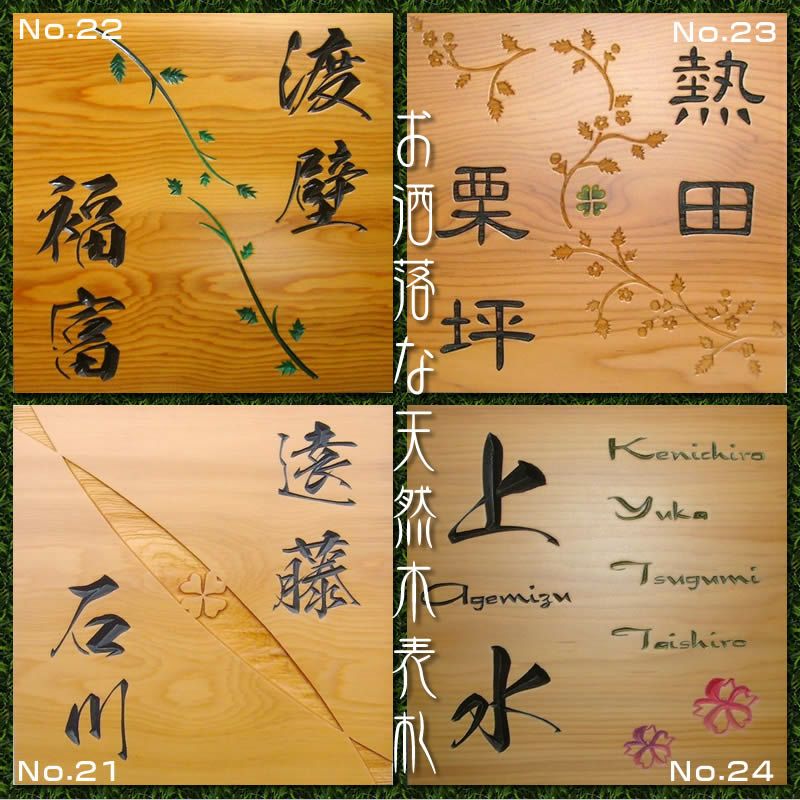 No.22
渡壁
福富
No.23
熱田
栗坪
お洒落な天然木表札
遠藤
石川
No.21
上水
Agemizu
Kenichiro
Yuka
Tsugumi
Taishiro
No.24